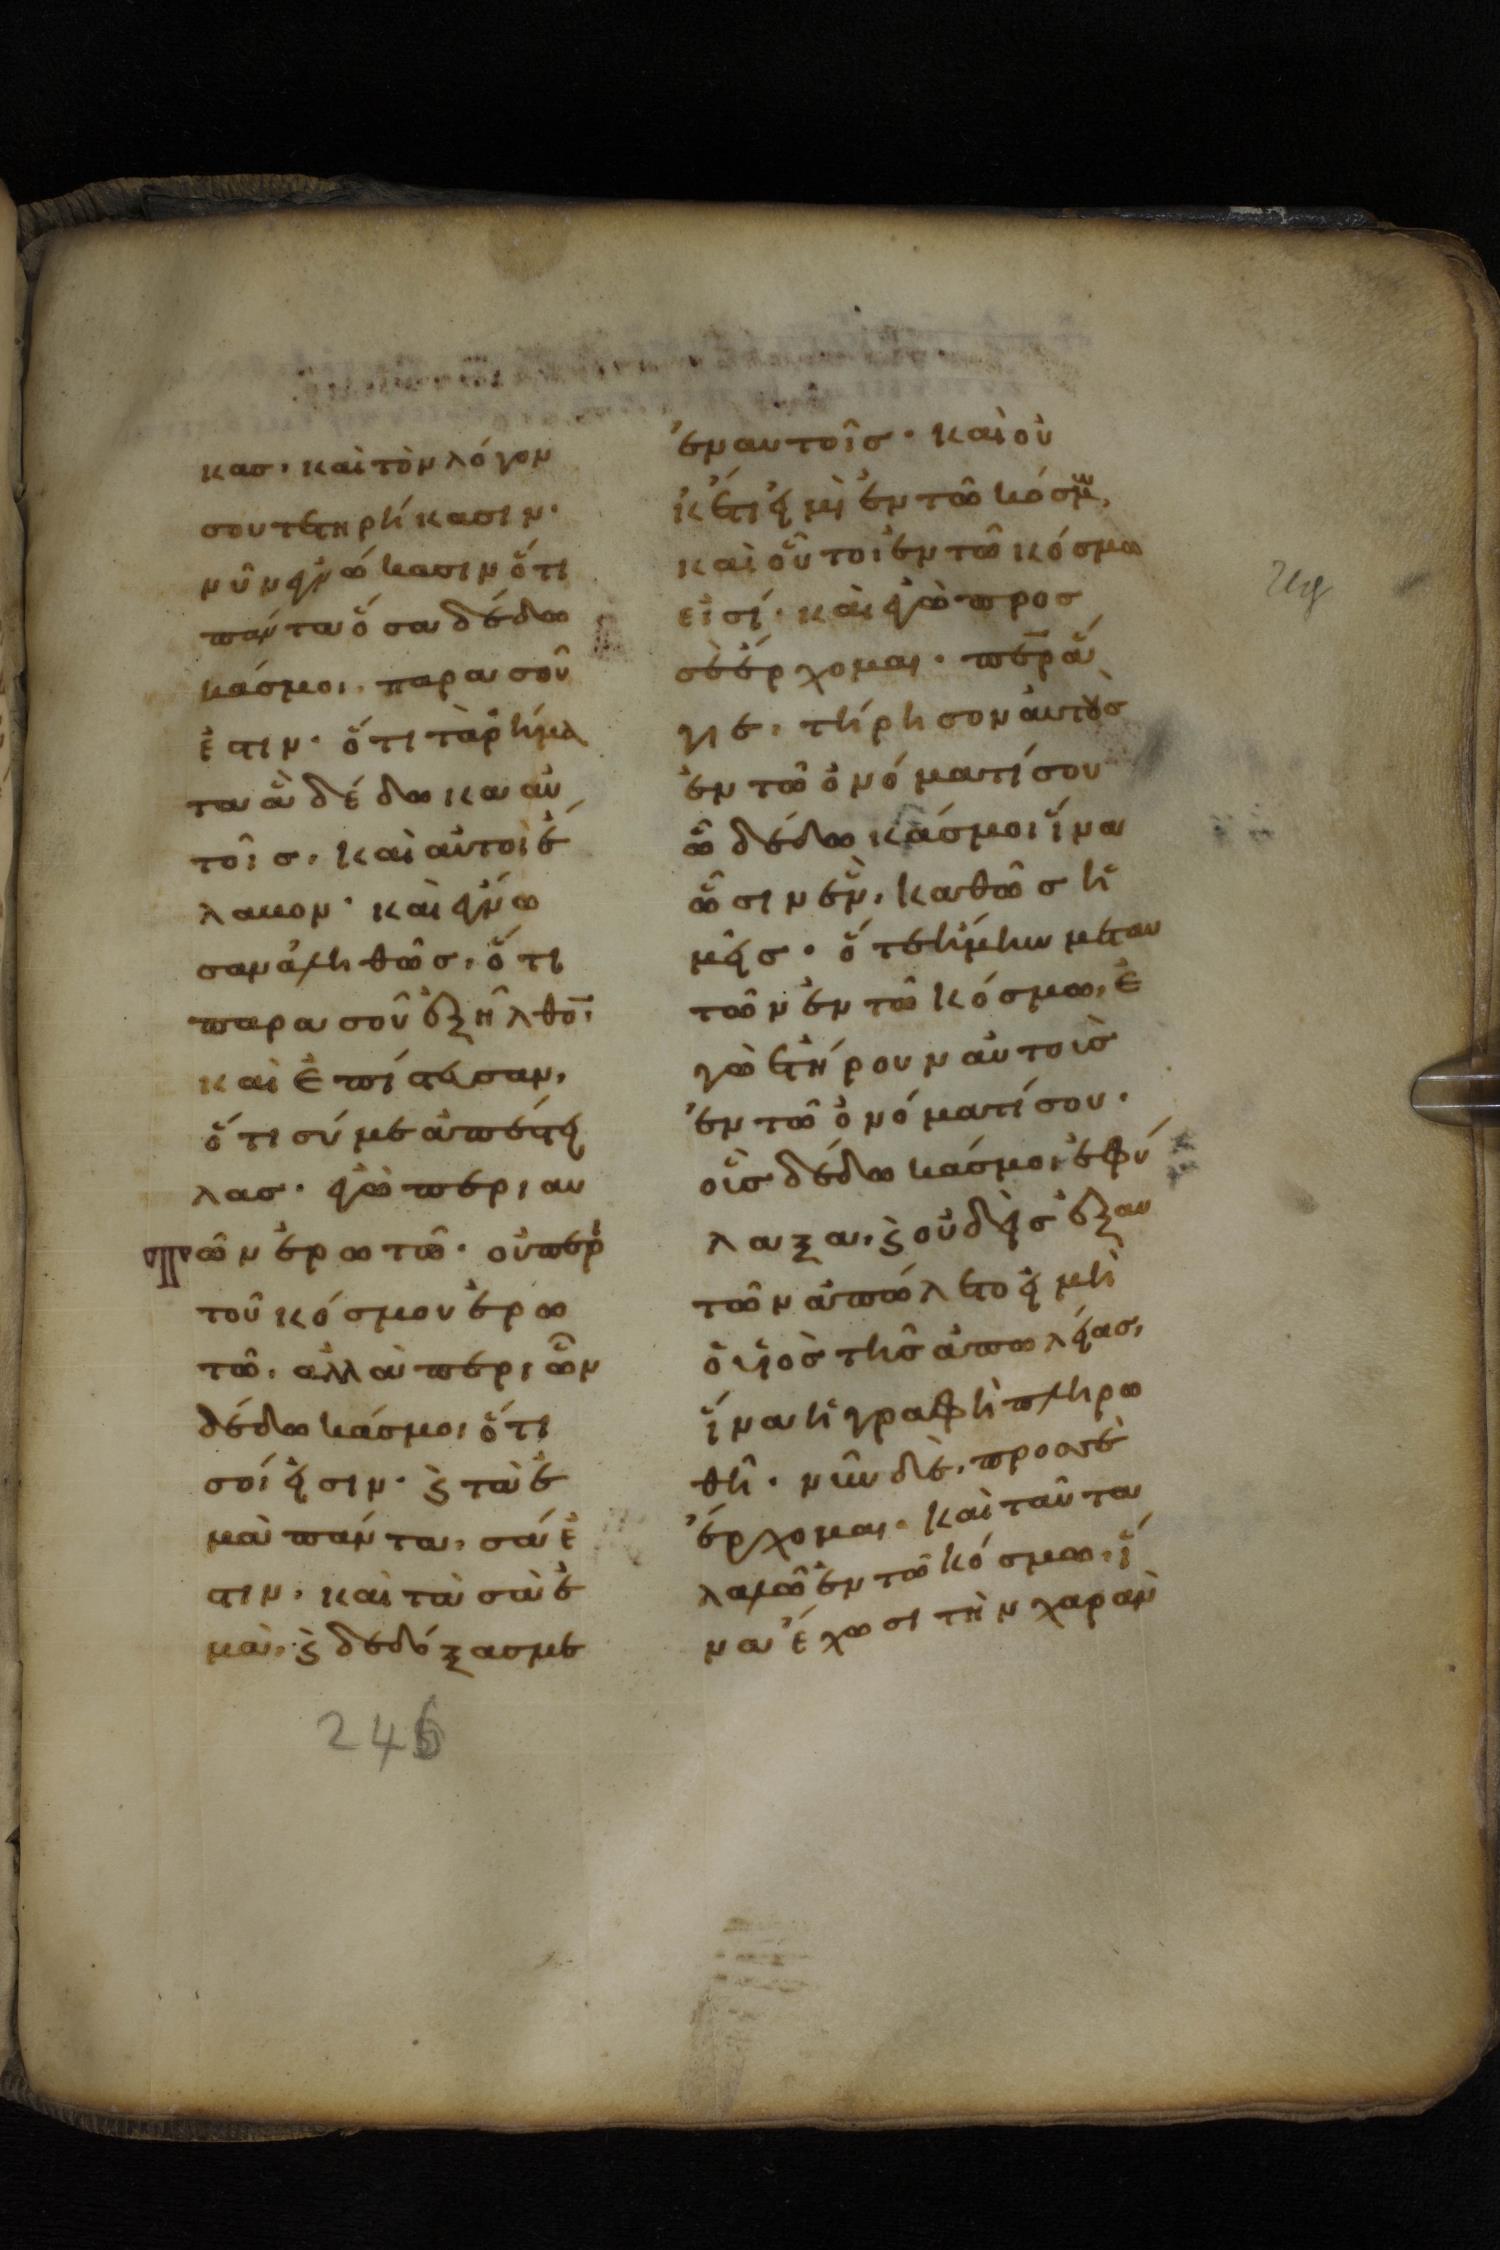 κασ· καὶ τὸν λόγον
σου τετηρήκασιν·
νῦν ἐγνώκασιν ὅτι
πάντα ὅσα δέδω
κάσ μοι, παρα σοῦ
ἐστιν· ὅτι τὰ ῥήμα
τα ἃ δέδωκα αὐ
τοῖσ, καὶ αὐτοὶ ἔ
λαβον· καὶ ἔγνω
σαν ἀληθῶσ, ὅτι
παρα σοῦ ἐξῆλθο̄·
καὶ ἐπίστευσαν,
ὅτι σύ με ἀπέστει
λασ· ἐγὼ περι αυ
τῶν ἐρωτῶ· οὐ περὶ
τοῦ κόσμου ἐρω
τῶ, ἀλλὰ περι ὧν
δέδωκάσ μοι ὅτι
σοί εἰσιν· ϗ τὰ ἐ
μὰ πάντα, σά ἐ
στιν, καὶ τὰ σὰ ἐ
μὰ, ϗ δεδόξασμε
ἐν αυτοῖσ· καὶ οὐ
κέτι εἰμὶ ἐν τῶ κόσμω,
καὶ οὗτοι ἐν τῶ κόσμω
εἰσί· καὶ ἐγὼ προσ
σὲ ἔρχομαι· πε̄ρ ἅ
γιε, τήρησον ἀυτοὺσ
ἐν τῶ ὀνόματί σου
ὧ δέδωκάσ μοι ἵνα
ὦσιν ἓν, καθῶσ ἡ
μεῖσ· ὅτε ἤμην μετ αυ
τῶν ἐν τῶ κόσμω, ἐ
γὼ ἐτήρουν αὐτοὺσ
ἐν τῶ ὀνόματί σου·
οὓσ δέδωκάσ μοι ἐφύ
λαξα, ϗ οὐδεὶσ ἐξ αυ
τῶν ἀπώλετο εἰ μὴ
ὁ υἱὸσ τῆσ ἀπωλείασ,
ἵνα ἡ γραφὴ πληρω
θῆ· νῦν δὲ, προσ σὲ
ἔρχομαι· καὶ ταῦτα
λαλῶ ἐν τῶ κόσμω, ἵ
να ἔχωσι τὴν χαρὰν
246